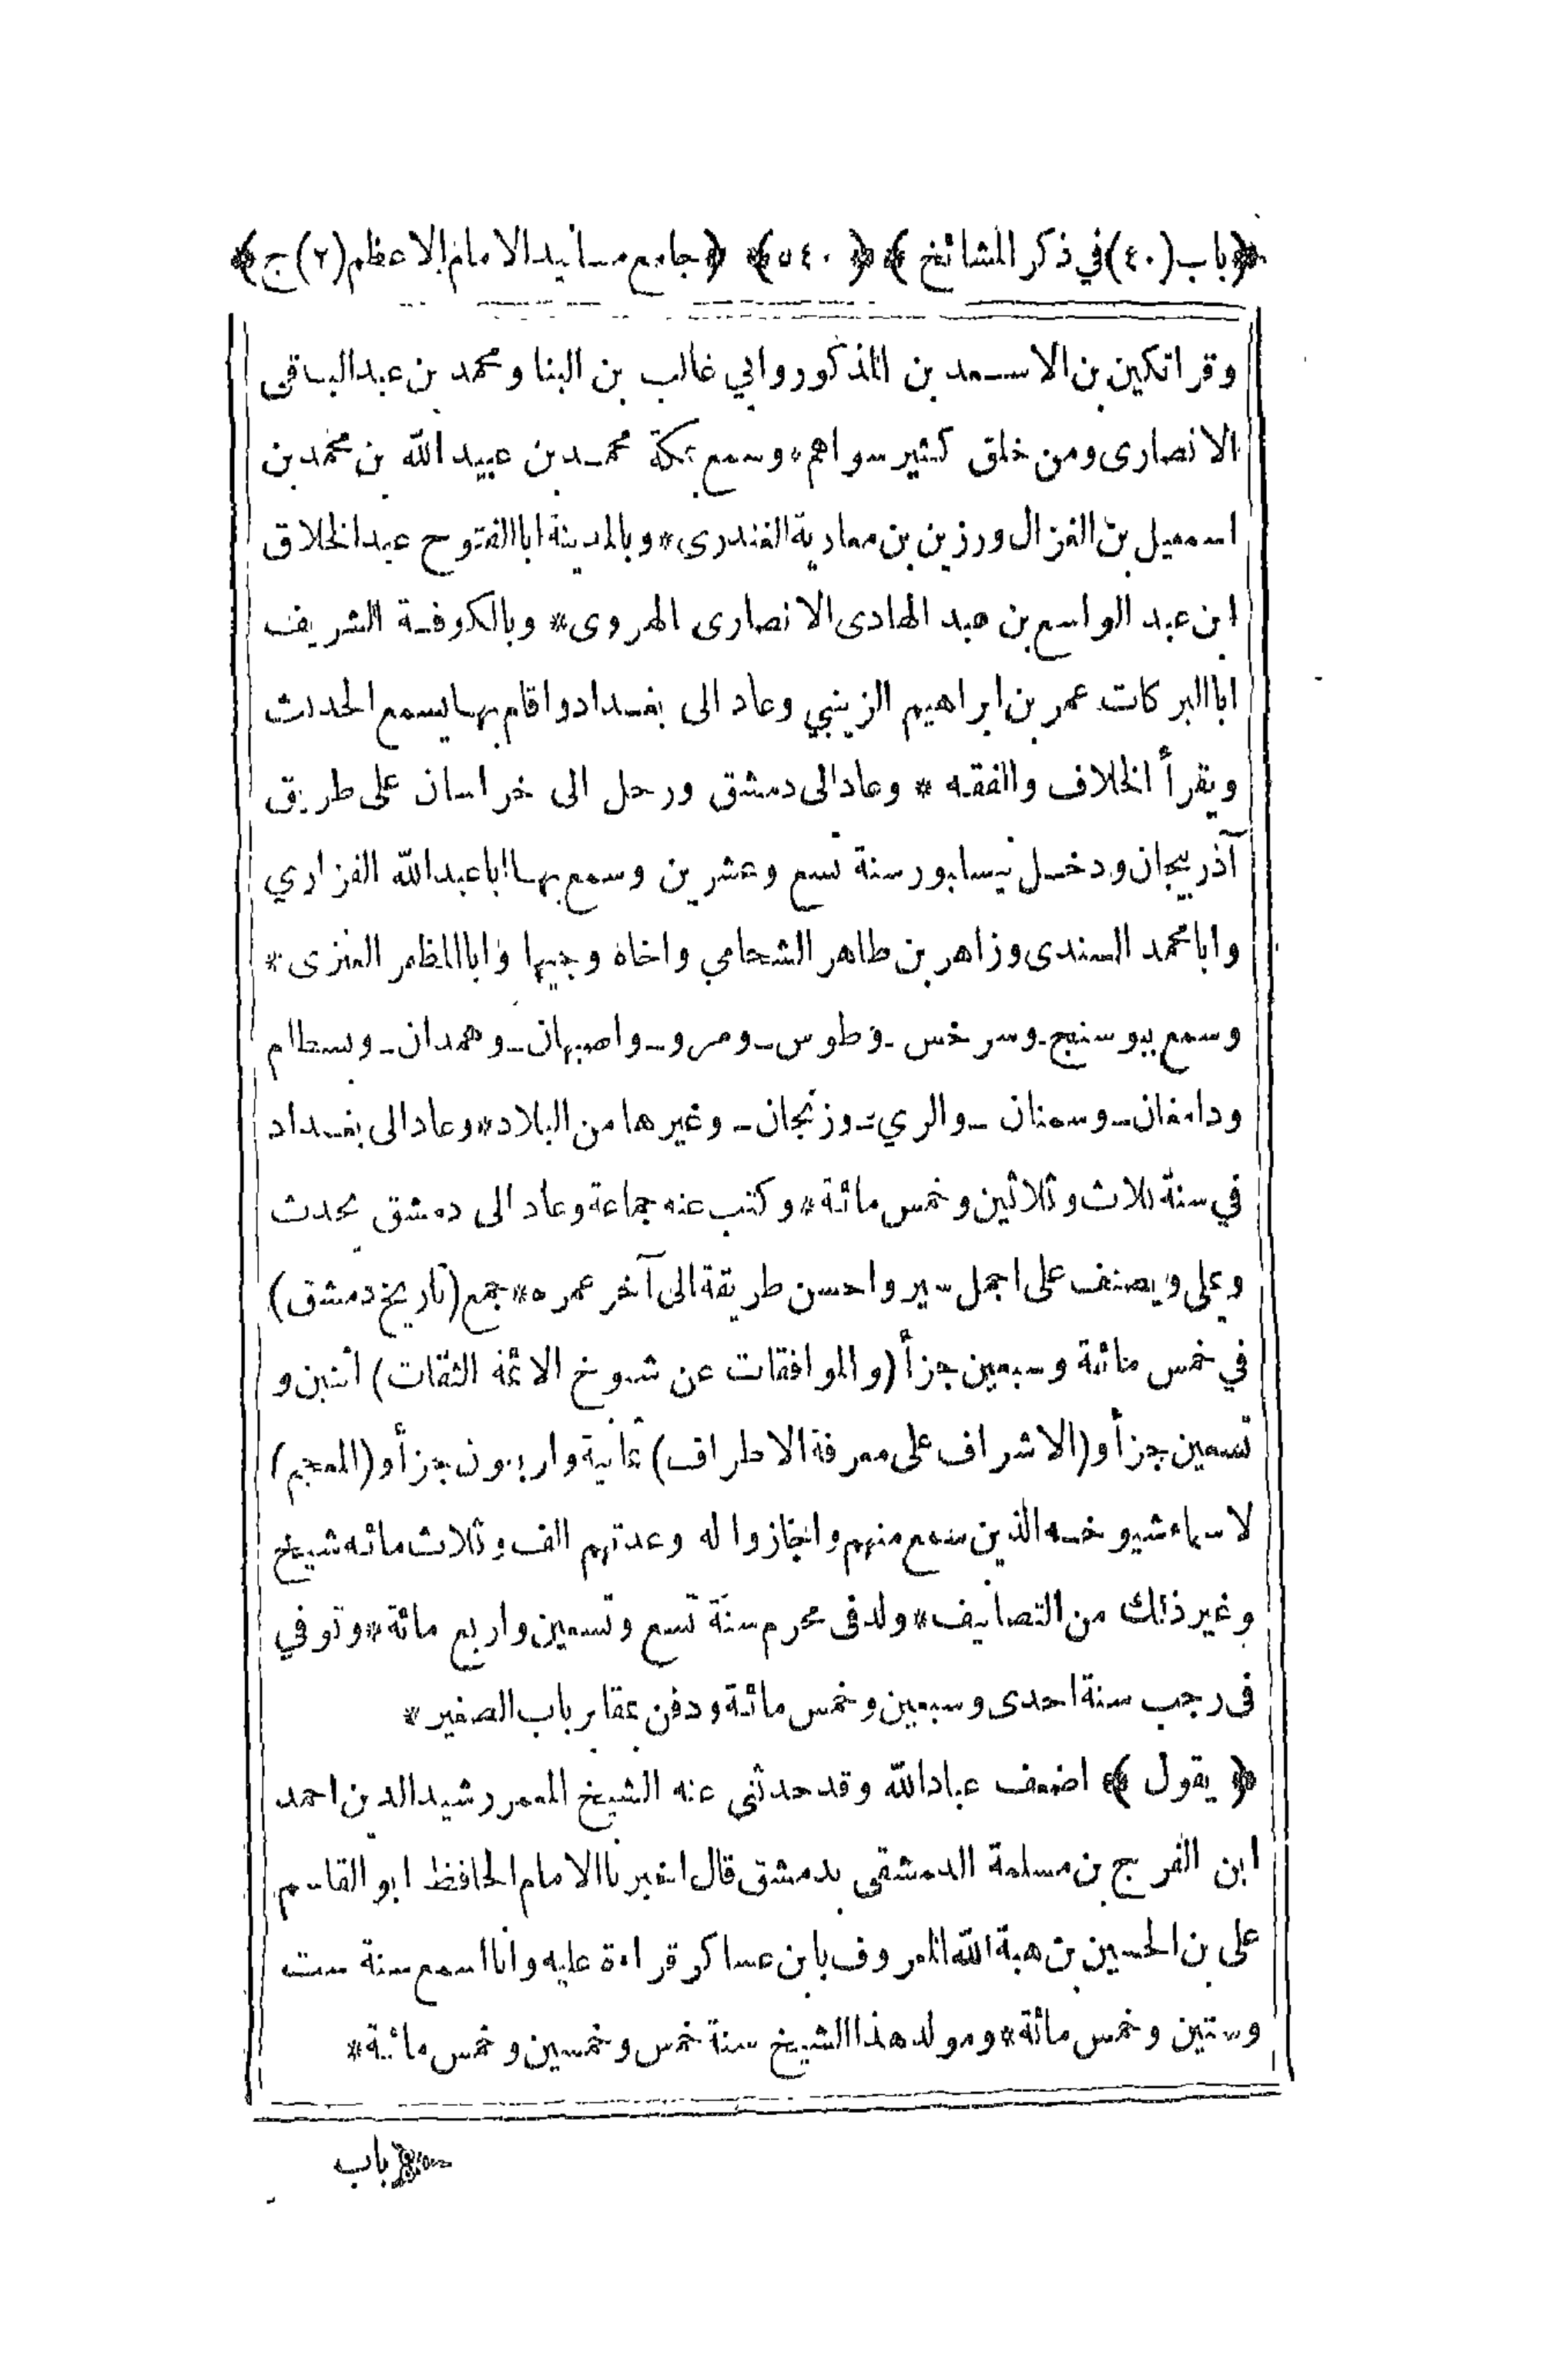 ﴿باب (٤٠) في ذكر المشائخ﴾ ﴿٥٤٠﴾ ﴿جامع مسانيد الامام الاعظم (٢) ج﴾
وقراتكين بن الاسعد بن المذكور وابي غالب بن البنا ومحمد بن عبد الباقى
الانصارى ومن خلق كثير سواهم * وسمع بمكة محمد بن عبيد الله بن محمد بن
اسمعيل بن الغزال ورزين بن معاوية الغندرى * وبالمدينة ابا الفتوح عبد الخلاق
ابن عبد الواسع بن عبد الهادى الانصارى الهروى * وبالكوفة الشريف
ابا البركات عمر بن ابراهيم الزينبي وعاد الى بغداد واقام بها يسمع الحديث
ويقرأ الخلاف والفقه * وعاد الى دمشق ورحل الى خراسان على طريق
آذربيجان ودخل نيسابور سنة تسع وعشرين وسمع بها ابا عبد الله الفزاري
وابا محمد السندى وزاهر بن طاهر الشحامي واخاه وجيها وابا المظفر العنزى *
وسمع ببوسنج ـ وسرخس ـ وطوس ـ ومرو ـ واصبهان ـ وهمدان ـ وبسطام
ودامغان ـ وسمنان ـ والري ـ وزنجان ـ وغيرها من البلاد * وعاد الى بغداد
في سنة ثلاث وثلاثين وخمس مائة * وكتب عنه جماعة وعاد الى دمشق يحدث
ويملى ويصنف على اجمل سير واحسن طريقة الى آخر عمره * جمع (تاريخ دمشق)
في خمس مائة وسبعين جزأ (والموافقات عن شيوخ الائمة الثقات) أثنين و
تسعين جزأ و(الاشراف على معرفة الاطراف) ثمانية واربعون جزأ و(المعجم)
لاسماء شيوخه الذين سمع منهم واجازوا له وعدتهم الف وثلاث مائه شيخ
وغير ذلك من التصانيف * ولد فى محرم سنة تسع وتسعين واربع مائة * وتوفي
فى رجب سنة احدى وسبعين وخمس مائة ودفن بمقابر باب الصغير *
﴿يقول﴾ اضعف عباد الله وقد حدثنى عنه الشيخ المعمر رشيد الدين احمد
ابن الفرج بن مسلمة الدمشقى بدمشق قال اخبرنا الامام الحافظ ابو القاسم
على بن الحسين بن هبة الله المعروف بابن عساكر قراءة عليه وانا اسمع سنة ست
وستين وخمس مائة * ومولد هذا الشيخ سنة خمس وخمسين وخمس مائة *
﴿باب